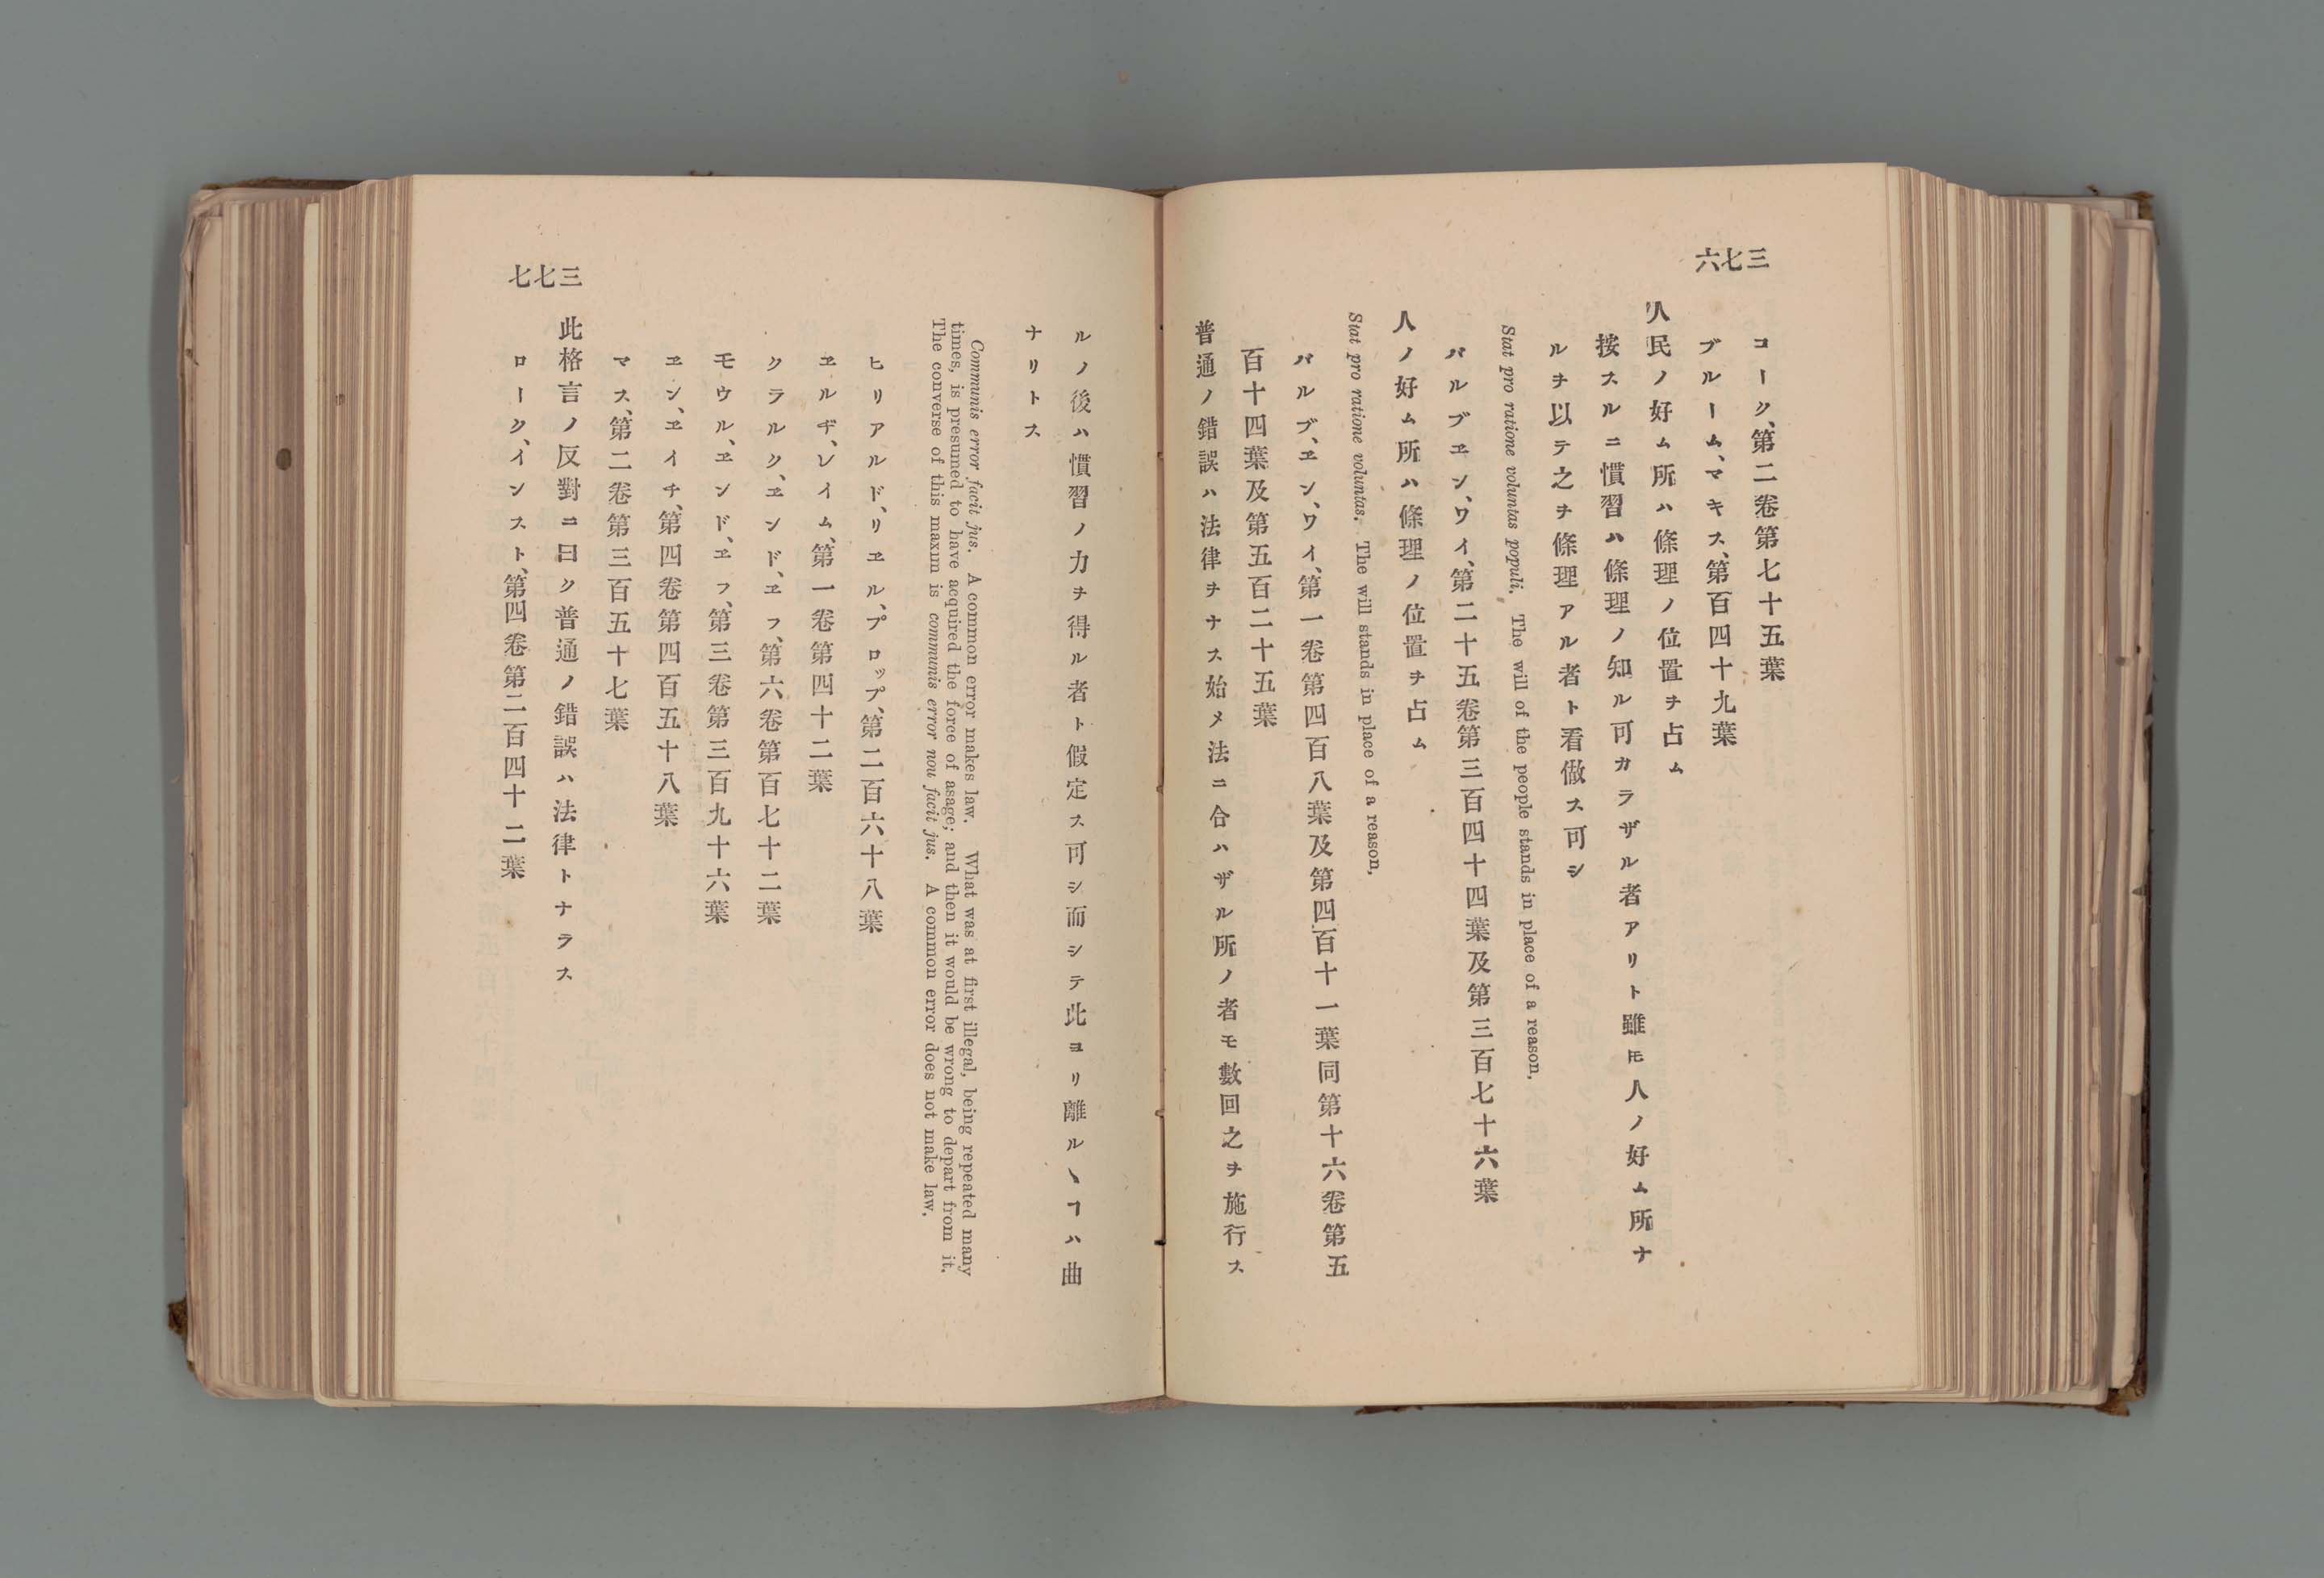 三七六
コーク、第二卷第七十五葉
ブルーム、マキス、第百四十九葉
人民ノ好ム所ハ條理ノ位置ヲ占ム
按スルニ慣習ハ條理ノ知ル可カラザル者アリト雖𪜈人ノ好ム所ナ
ルヲ以テ之ヲ條理アル者ト看做ス可シ
Stat pro ratione voluntas populi. The will of the people stands in place of a reason,
バルブヱン、ワイ、第二十五卷第三百四十四葉及第三百七十六葉
人ノ好ム所ハ條理ノ位置ヲ占ム
Stat pro ratione voluntas. The will stands in place of a reason,
バルブ、ヱン、ワイ、第一卷第四百八葉及第四百十一葉同第十六卷第五
百十四葉及第五百二十五葉
普通ノ錯誤ハ法律ヲナス始メ法ニ合ハザル所ノ者モ數回之ヲ施行ス
ルノ後ハ慣習ノ力ヲ得ル者ト假定ス可シ而シテ此ヨリ離ルヽヿハ曲
ナリトス
Communis error facit jus. A common error makes law. What was at first illegal, being repeated many
times, is presumed to have acquired the force of asage; and then it would be wrong to depart from it.
The converse of this maxim is communis error nou facit jus. A common error does not make law.
ヒリアルド、リヱル、プロップ、第二百六十八葉
ヱルヂ、レイム、第一卷第四十二葉
クラルク、ヱンド、ヱフ、第六卷第百七十二葉
モウル、ヱンド、ヱフ、第三卷第三百九十六葉
ヱン、ヱイチ、第四卷第四百五十八葉
マス、第二卷第三百五十七葉
三七七
此格言ノ反對ニ曰ク普通ノ錯誤ハ法律トナラス
ローク、インスト、第四卷第二百四十二葉